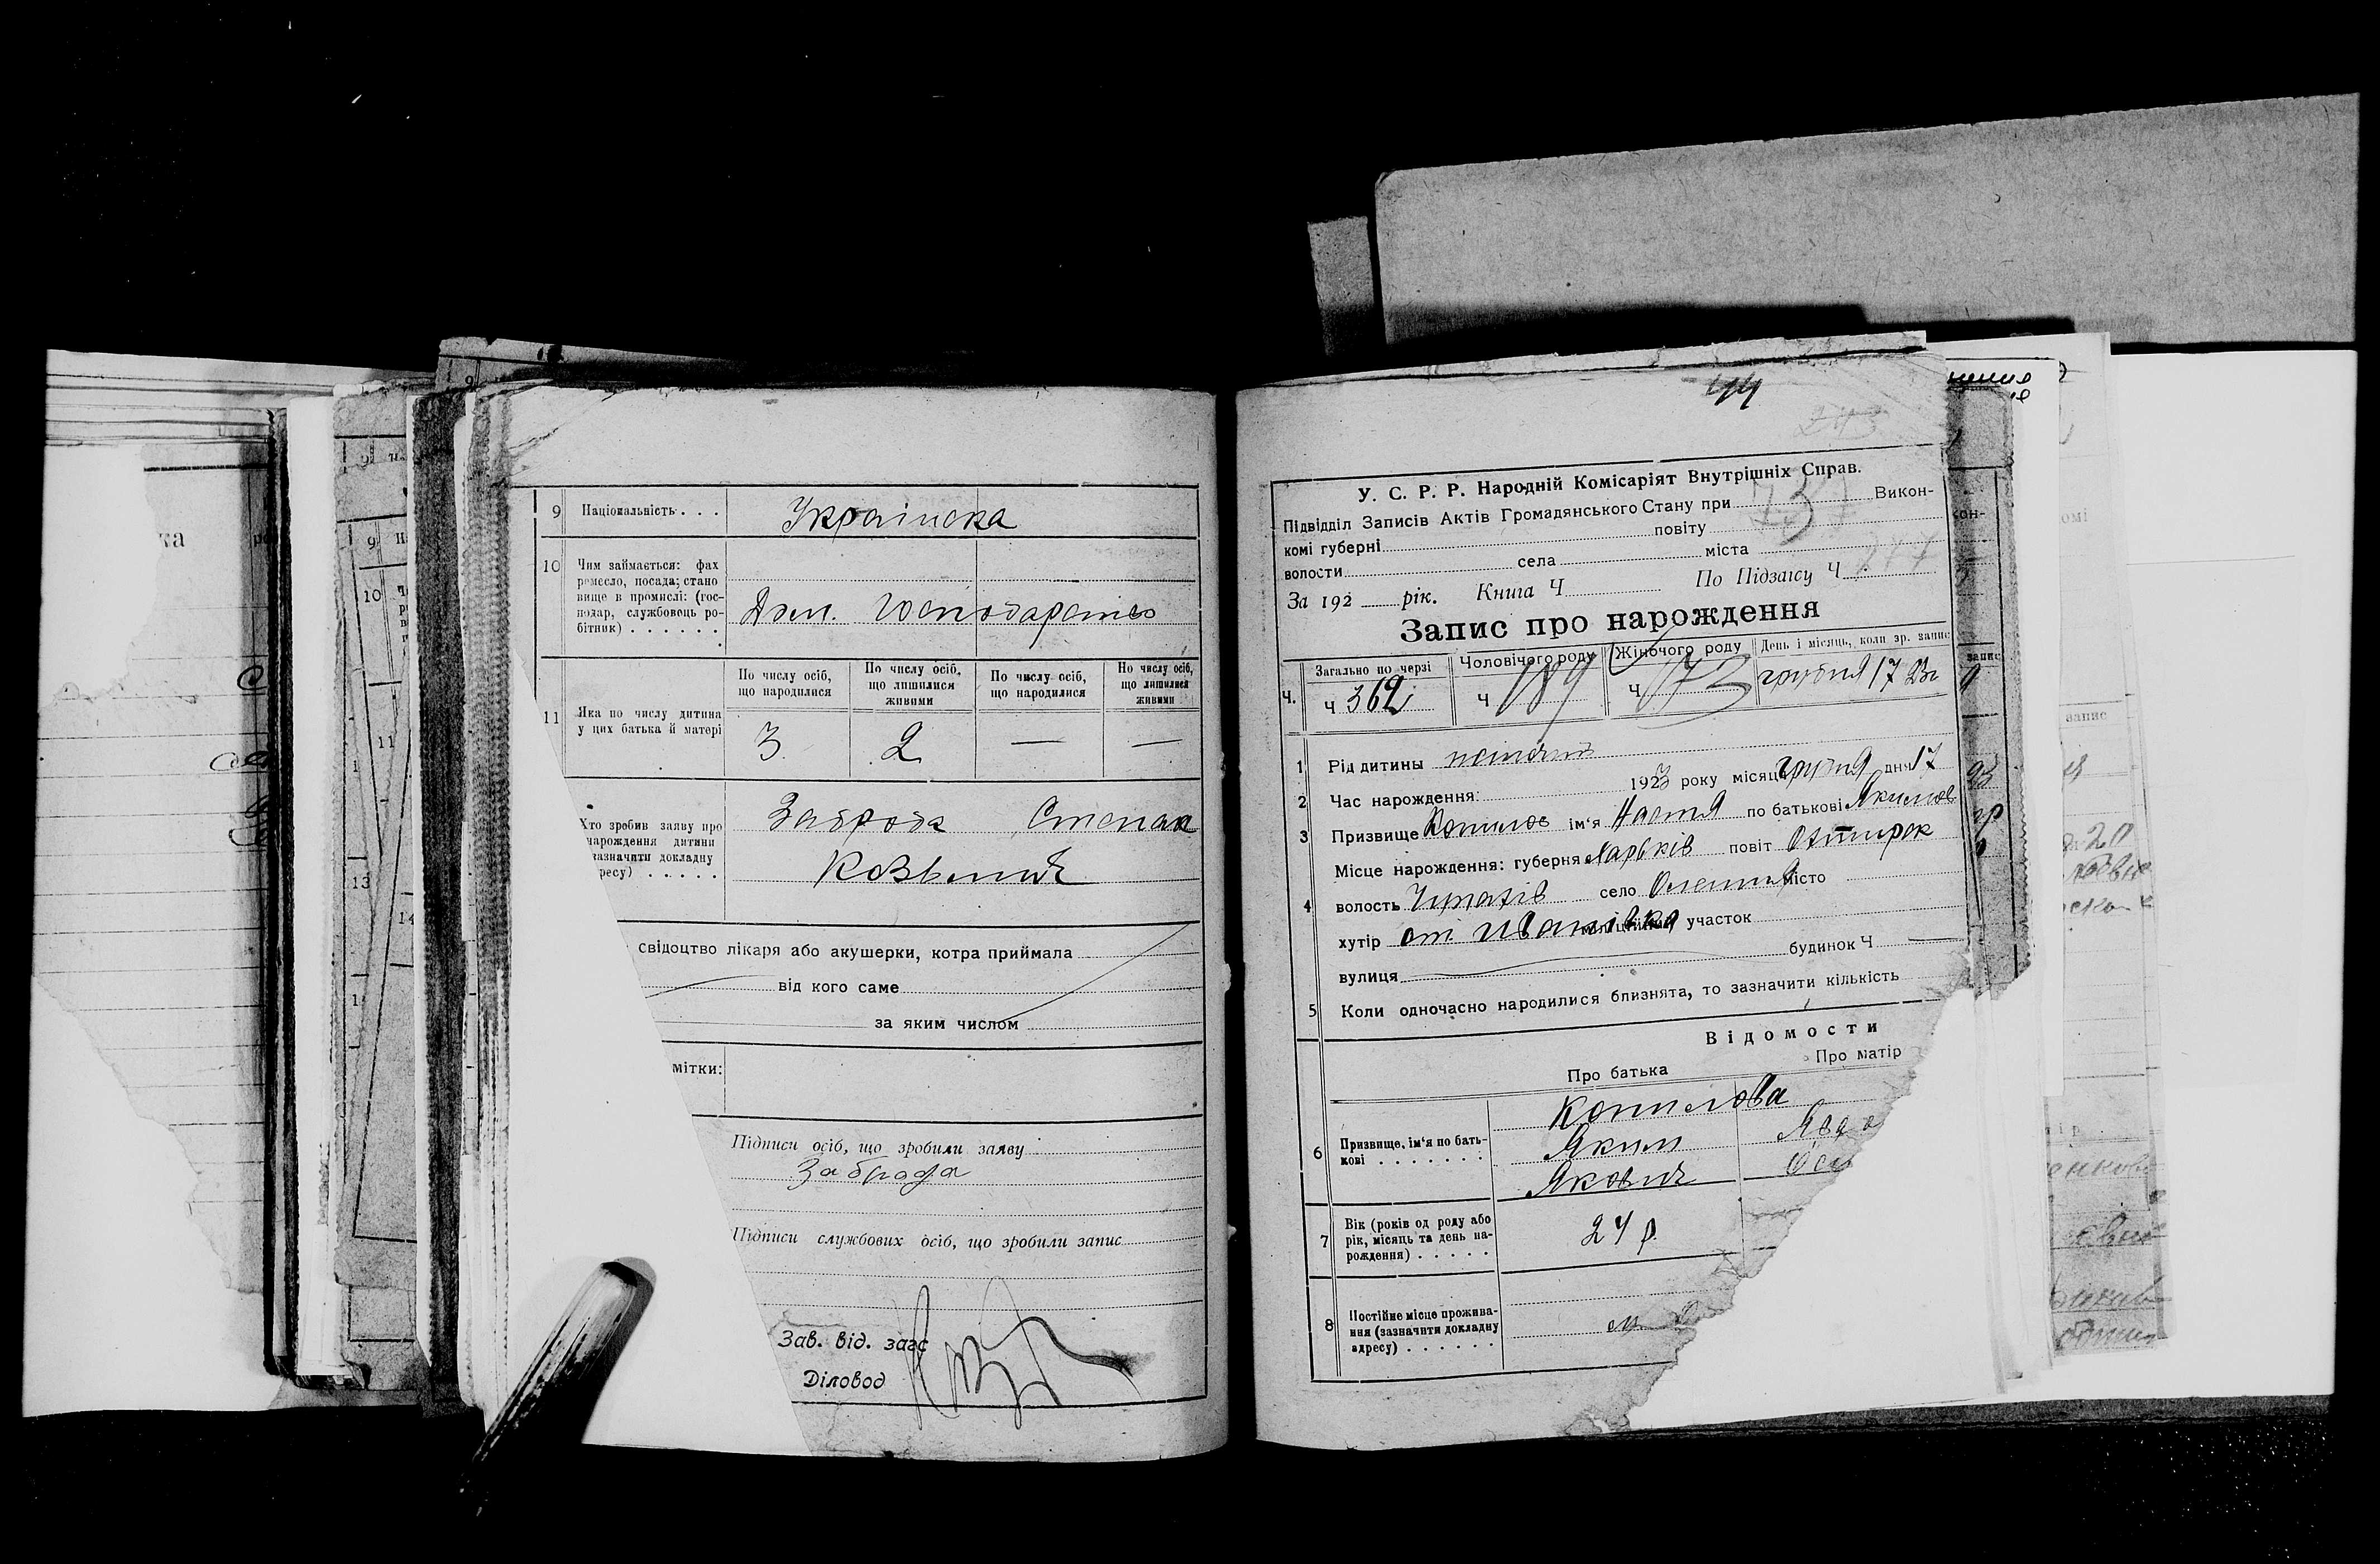 9 Національність . . . Українска
10 Чим займається: фах
ремесло, посада; стано
вище в промислі: (гос-
подар, службовець ро-
бітник) . . . . . .
Дом. господарство
По числу осіб, що народилися
По числу осіб, що лишилися живими
По числу осіб, що народилися
Но числу осіб, що лишилися живими
11 Яка по числу дитина
у цих батька й матері
3 2 — —
Хто зробив заяву про
народження дитини
зазначити докладну
ресу) . . . . .
Заброда Степан
Козьмич
свідоцтво лікаря або акушерки, котра приймала
від кого саме
за яким числом
мітки:
Підписи осіб, що зробили заяву
Заброда
Підписи службових осіб, що зробили запис
Зав. від. загс
Діловод
44
У. С. Р. Р. Народній Комісаріят Внутрішніх Справ.
Підвідділ Записів Актів Громадянського Стану при Викон-
737
комі губерні повіту
волости села міста
За 192 рік. Книга Ч По Підзагсу Ч
Запис про нарождення
Загально по черзі Чоловічого роду Жіночого роду День і місяць, коли зр. запис
Ч. ч 362 ч 189 ч 173 грудня 17 23г
1 Рід дитини
2 Час нарождення: 1923 року місяц грудня дня 17
3 Призвище Копилов ім'я Настя по батькові Якимов
Місце нарождення: губерня Харьків повіт Охтирок
4 волость Чупахів село Олешня місто
хутір от Иванівка участок
вулиця будинок Ч —
5 Коли одночасно народилися близнята, то зазначити кількість
Відомости
Про батька Про матір
6 Призвище, ім'я по бать-
кові . . . . . . .
Копилова
Яким Явдо
Якович Оси
7 Вік (років од роду або
рік, місяць та день на-
рождення) . . . . .
24 р.
8 Постійне місце прожива-
ння (зазначити докладну
адресу) . . . . . .